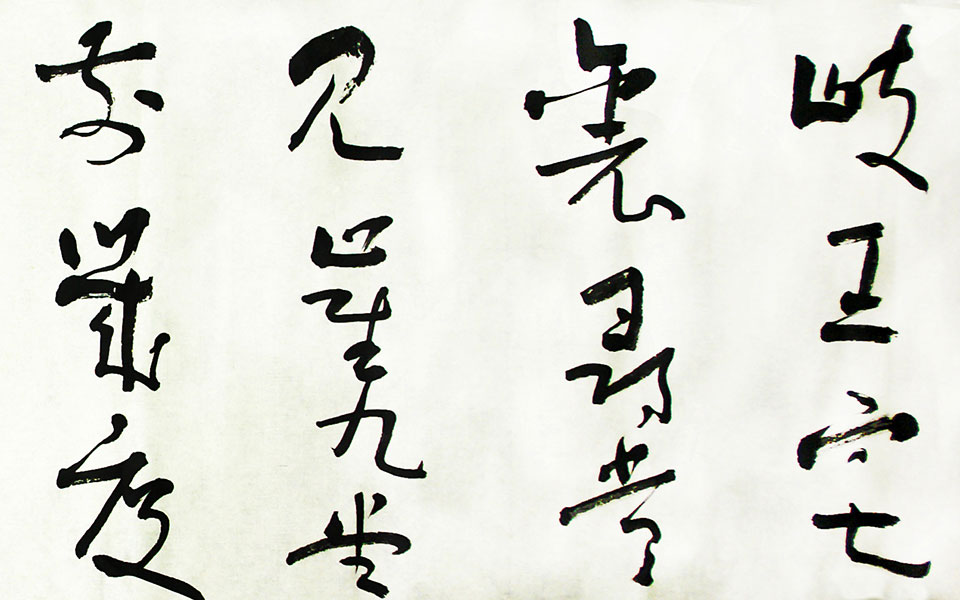 岐王宅
裏尋常
見崔九堂
前幾度